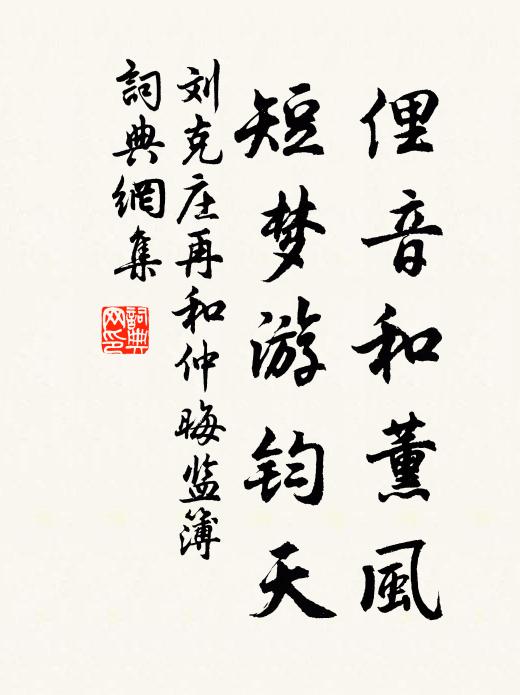 俚音和薰風
短梦游钧天
刘克庄再和仲晦监簿
詞典網集
詞典网印